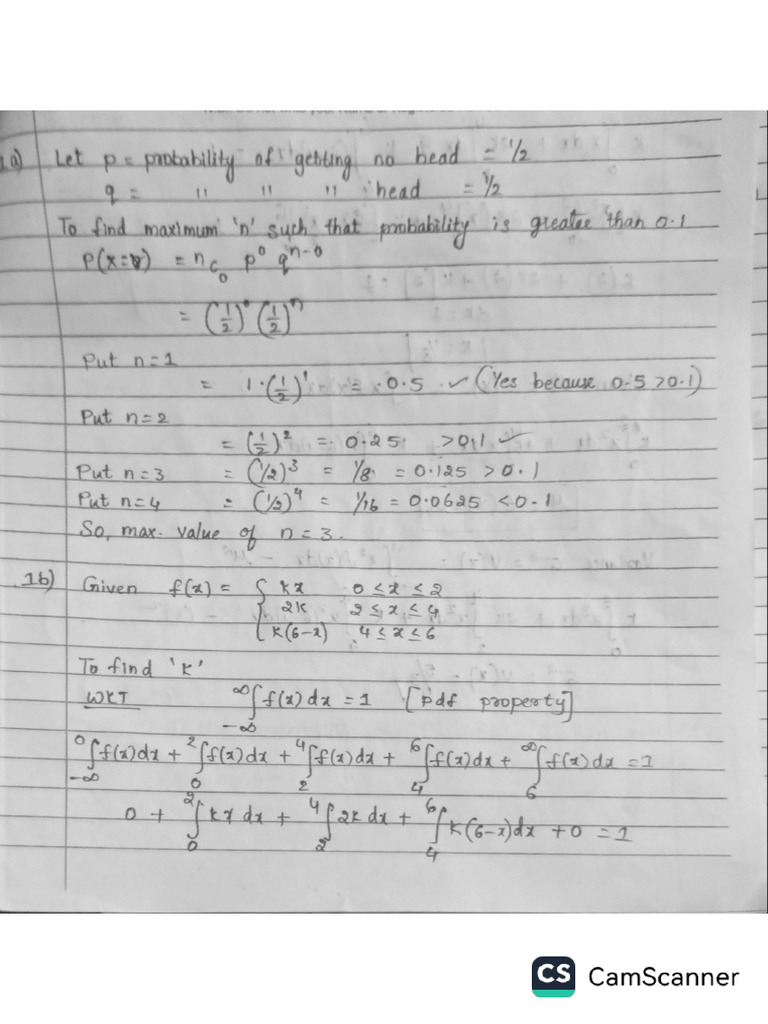 1a) Let p = probability of getting no head = 1/2
q = " " " head = 1/2
To find maximum 'n' such that probability is greater than 0.1
P(x=0) = nC₀ p⁰ qⁿ⁻⁰
= (1/2)⁰ (1/2)ⁿ
Put n=1
= 1·(1/2)¹ = 0.5 ✓ (Yes because 0.5 >0.1)
Put n=2
= (1/2)² = 0.25 >0.1 ✓
Put n=3 = (1/2)³ = 1/8 = 0.125 > 0.1
Put n=4 = (1/2)⁴ = 1/16 = 0.0625 < 0.1
So, max. value of n = 3.
1b) Given f(x) = { kx 0 ≤ x ≤ 2
2k 2 ≤ x ≤ 4
k(6-x) 4 ≤ x ≤ 6
To find 'k'
WKT ∞∫-∞ f(x) dx = 1 [pdf property]
0∫-∞ f(x)dx + 2∫0 f(x)dx + 4∫2 f(x)dx + 6∫4 f(x)dx + ∞∫6 f(x)dx = 1
0 + 2∫0 kx dx + 4∫2 2k dx + 6∫4 k(6-x)dx + 0 = 1
CS CamScanner